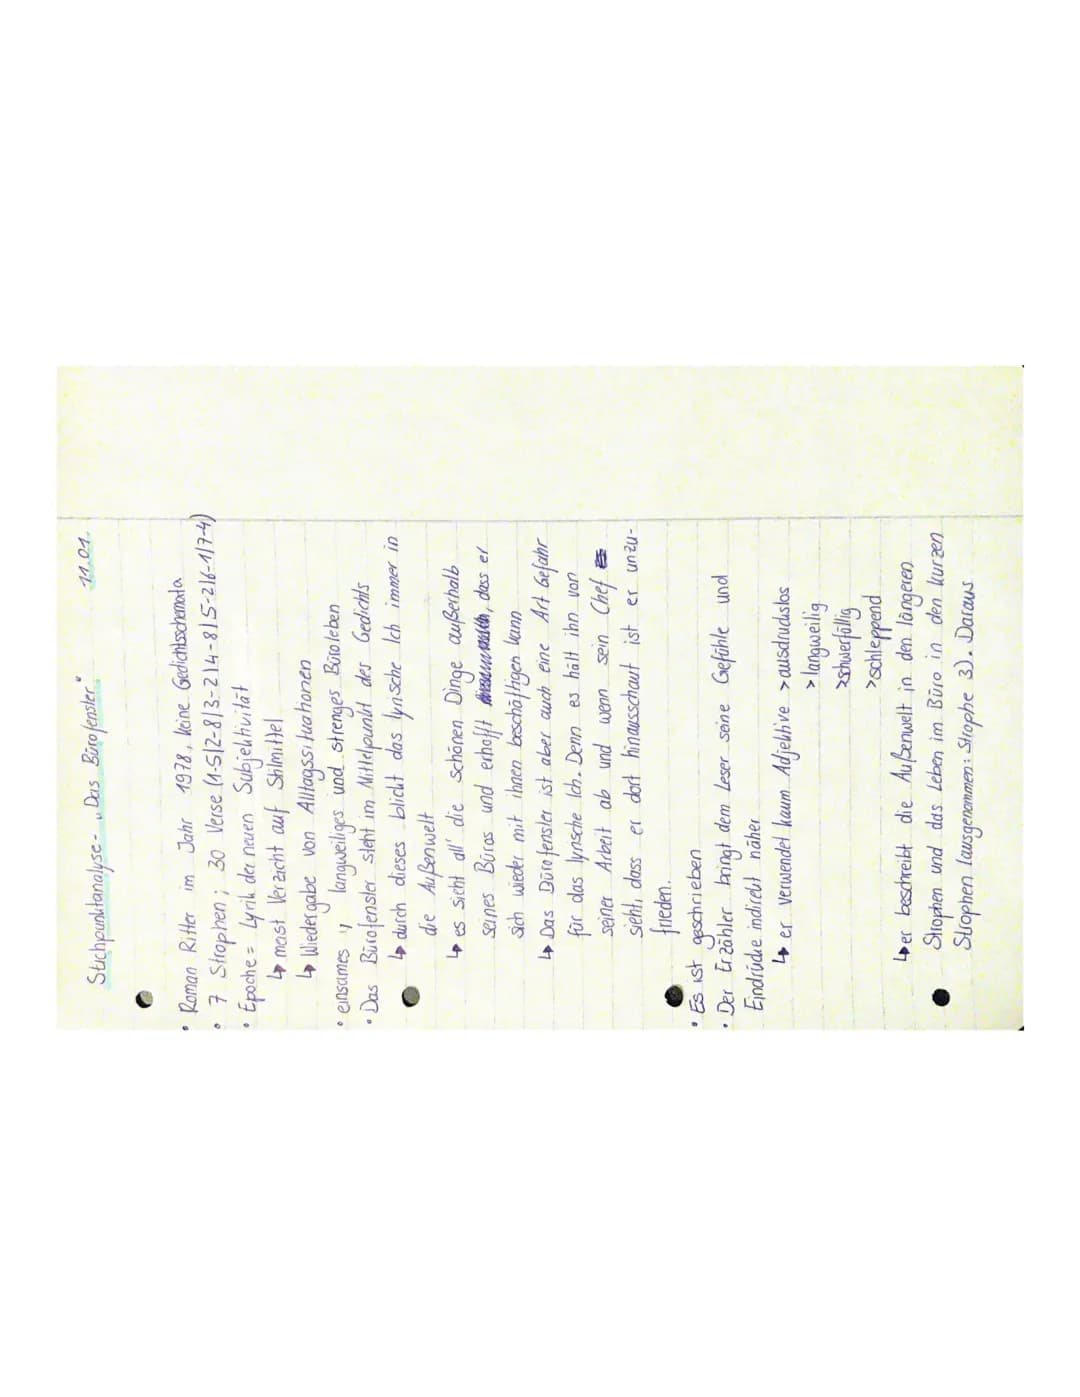 Stichpunktanalyse - „Das Bürofenster" 11.01.
• Roman Ritter im Jahr 1978, keine Gedichtschemata
• 7 Strophen; 30 Verse (1-5|2-8|3-2|4-8|5-2|6-1|7-4)
• Epoche = Lyrik der neuen Subjektivität
↳ meist Verzicht auf Stilmittel
↳ Wiedergabe von Alltagssituationen
• einsames, langweiliges und strenges Büroleben
• Das Bürofenster steht im Mittelpunkt des Gedichts
↳ durch dieses blickt das lyrische Ich immer in
die Außenwelt
↳ es sieht all' die schönen Dinge außerhalb
seines Büros und erhofft, dass er
sich wieder mit ihnen beschäftigen kann
↳ Das Bürofenster ist aber auch eine Art Gefahr
für das lyrische Ich. Denn es hält ihn von
seiner Arbeit ab und wenn sein Chef
sieht, dass er dort hinausschaut ist er unzu-
frieden.
• Es ist geschrieben
• Der Erzähler bringt dem Leser seine Gefühle und
Eindrücke indirekt näher
↳ er verwendet kaum Adjektive > ausdruckslos
> langweilig
> schwerfällig
> schleppend
↳ er beschreibt die Außenwelt in den längeren
Strophen und das Leben im Büro in den kurzen
Strophen (ausgenommen: Strophe 3). Daraus